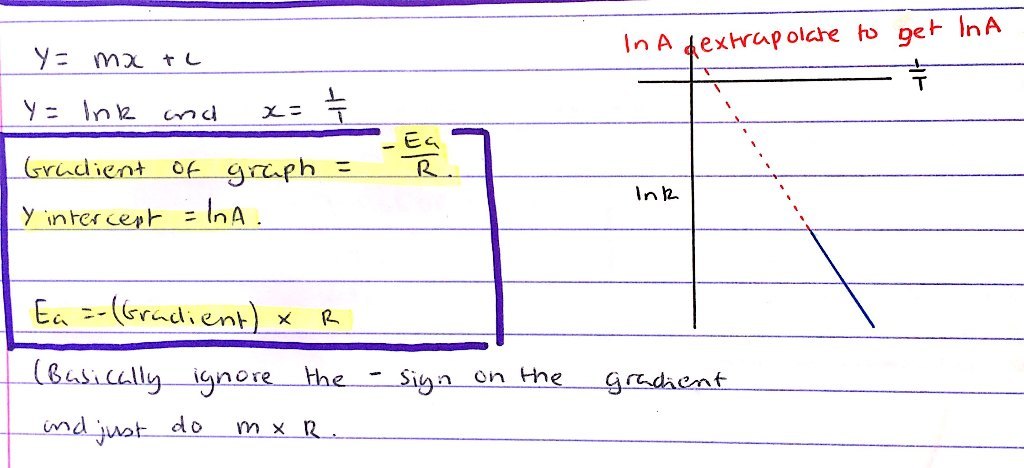 y = mx + c
y = lnk and x = 1/T
Gradient of graph = -Ea/R.
y intercept = lnA.
Ea = -(Gradient) × R
(Basically ignore the - sign on the gradient
and just do m × R.
lnA extrapolate to get lnA
1/T
lnk